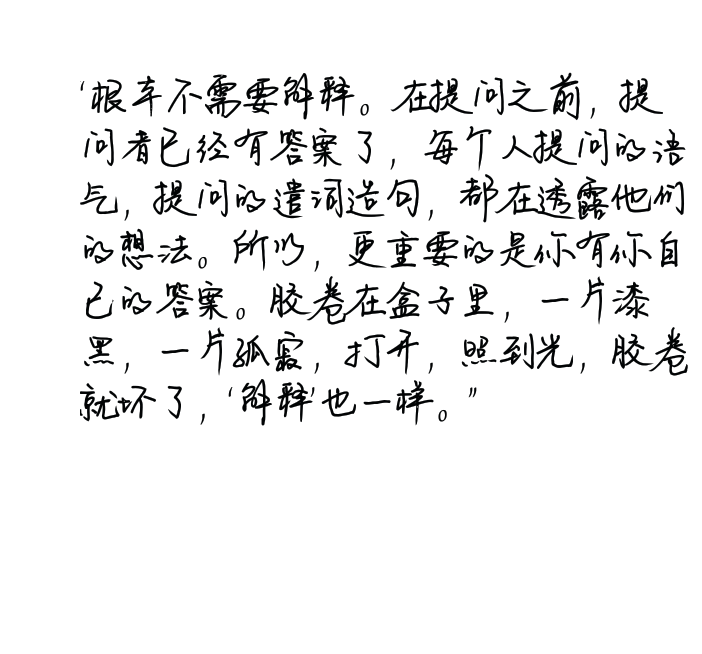 “根本不需要解释。在提问之前，提
问者已经有答案了，每个人提问的语
气，提问的遣词造句，都在透露他们
的想法。所以，更重要的是你有你自
己的答案。胶卷在盒子里，一片漆
黑，一片孤寂，打开，照到光，胶卷
就坏了，‘解释’也一样。”